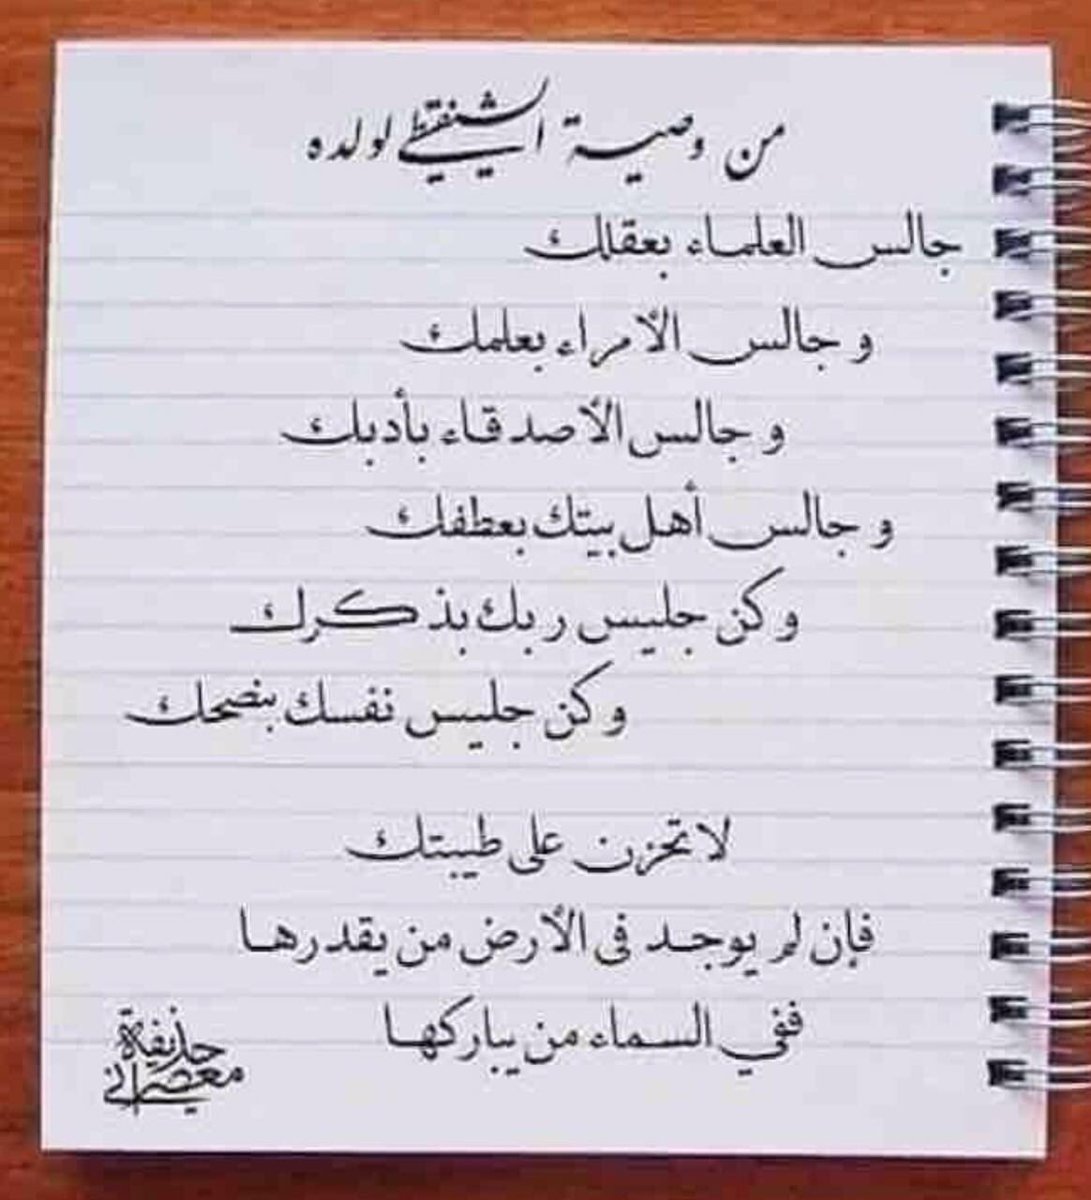 من وصية الشنقيطي لولده
جالس العلماء بعقلك
و جالس الأمراء بعلمك
و جالس الأصدقاء بأدبك
و جالس أهل بيتك بعطفك
وكن جليس ربك بذكرك
وكن جليس نفسك بنصحك
لا تحزن على طيبتك
فإن لم يوجد في الأرض من يقدرها
ففي السماء من يباركها
حذيفة
معصراني